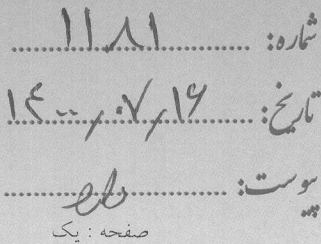 شماره: ۱۱۸۱
تاریخ: ۱۴۰۰/۰۷/۱۶
پیوست: دارد
صفحه : یک